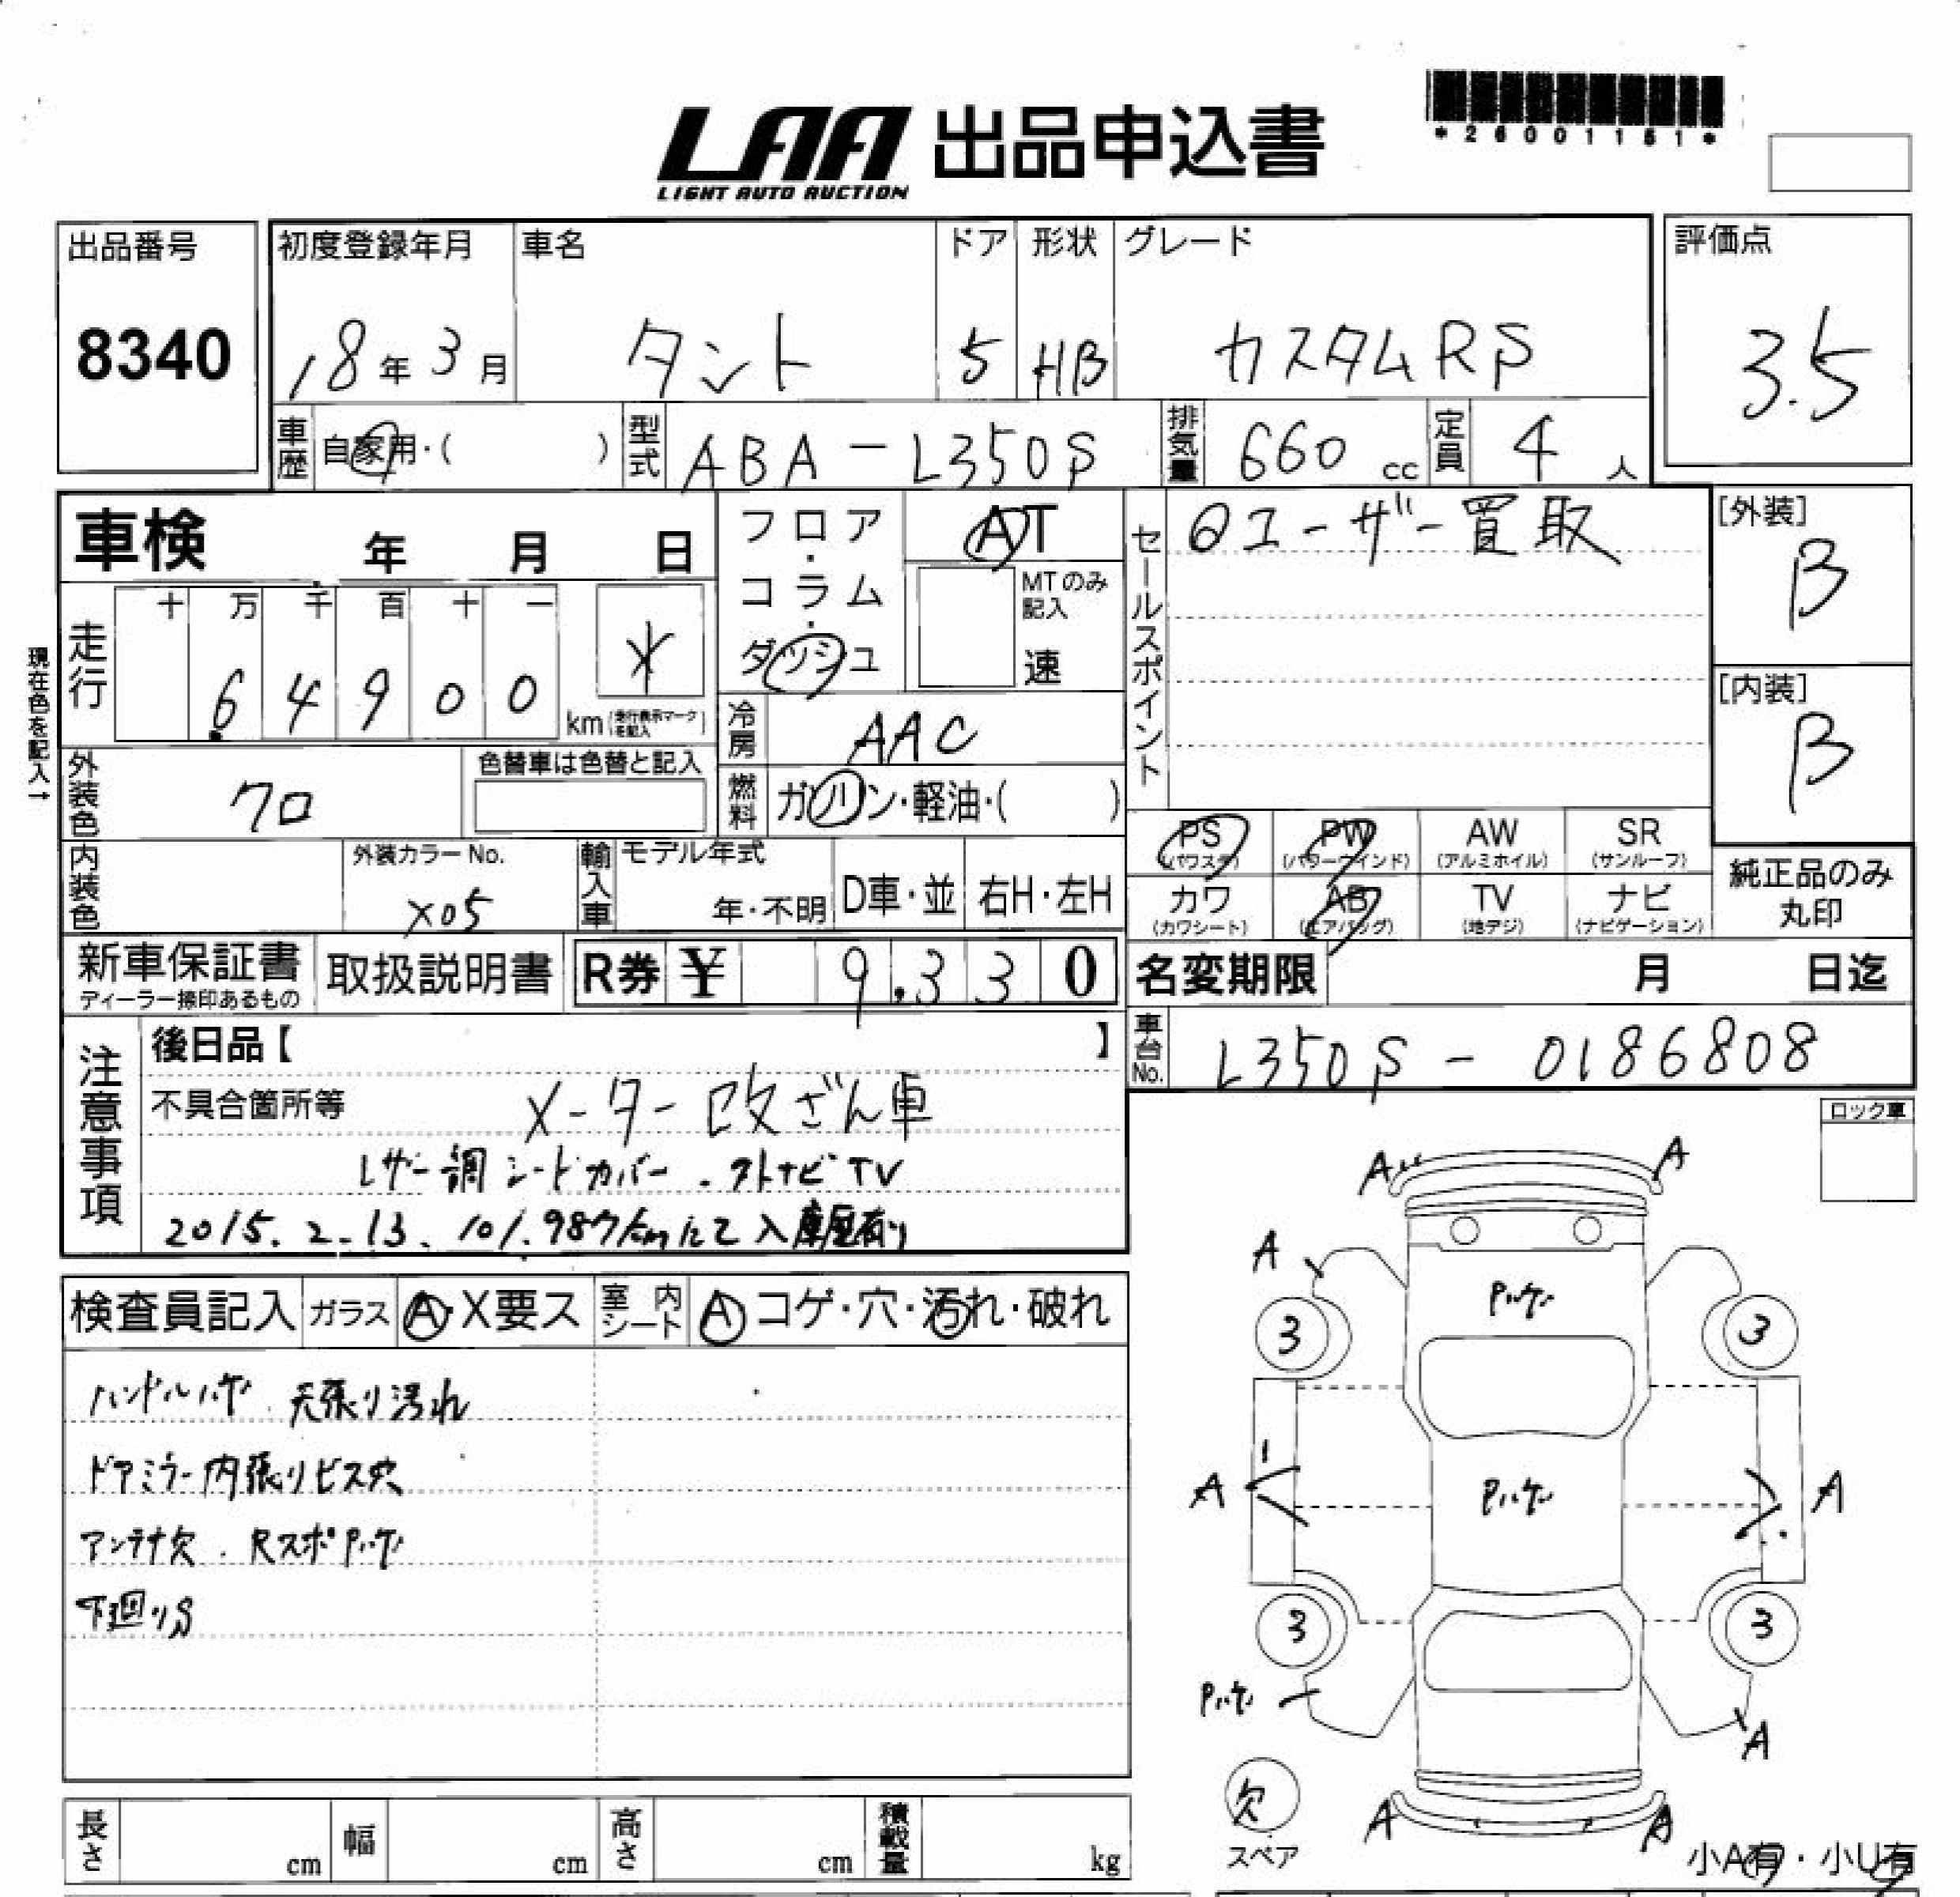 *26001151*
LAA 出品申込書
LIGHT AUTO AUCTION
出品番号 初度登録年月 車名 ドア 形状 グレード 評価点
8340 18年3月 タント 5 HB カスタムRS 3.5
車歴 自家用・( ) 型式 ABA-L350S 排気量 660cc 定員 4人
車検 年 月 日
フロア・コラム・ダッシュ
AT
MTのみ記入
速
セールスポイント
◎ユーザー買取
[外装]
B
[内装]
B
現在色を記入→
走行 十 万 千 百 十 一
64900 * km (走行表示マークを記入)
冷房 AAC
外装色 クロ 色替車は色替と記入
燃料 ガソリン・軽油・( )
PS (パワステ) PW (パワーウインド) AW (アルミホイル) SR (サンルーフ)
カワ (カワシート) AB (エアバッグ) TV (地デジ) ナビ (ナビゲーション)
純正品のみ
丸印
内装色 外装カラーNo. X05 輸入車 モデル年式 年・不明 D車・並 右H・左H
新車保証書 取扱説明書 R券 ¥ 9,330
ディーラー捺印あるもの
名変期限 月 日迄
車台No. L350S-0186808
注意事項
後日品【 】
不具合箇所等 メーター改ざん車
レザー調シートカバー.ストナビTV
2015.2.13. 101.987kmにて入庫歴有り
ロック車
検査員記入 ガラス A・X要ス 室内シート A コゲ・穴・汚れ・破れ
ハンドルハゲ.天張り汚れ
ドアミラー内張りビス穴
アンテナ欠.RスポPハゲ
下廻りS
A A
A
Pハゲ
3 3
A Pハゲ A
3 3
Pハゲ
A
欠
スペア
A A
小A有・小U有
長さ cm 幅 cm 高さ cm 積載量 kg